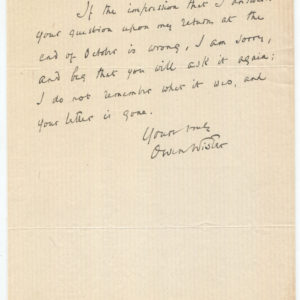 If the impression that I answered
your question upon my return at the
end of October is wrong, I am sorry,
and beg that you will ask it again;
I do not remember what it was, and
your letter is gone.
Yours truly
Owen Wister